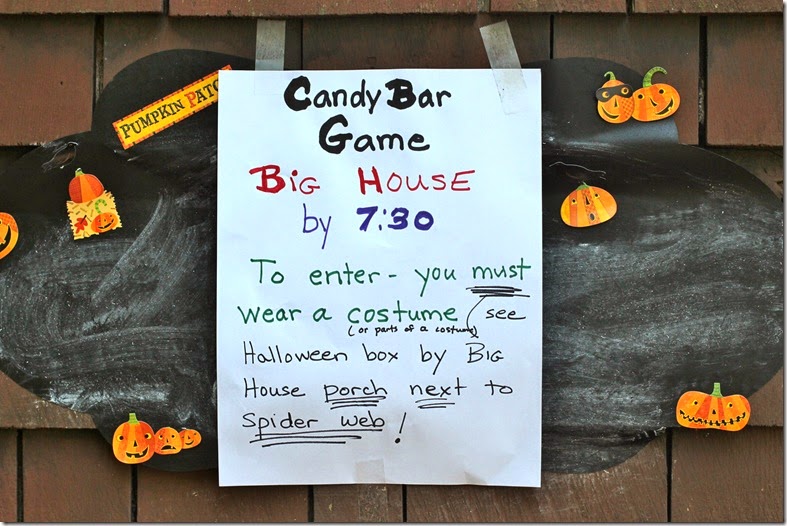 PUMPKIN PATCH
Candy Bar
Game
Big House
by 7:30
To enter - you must
wear a costume (see
(or parts of a costume)
Halloween box by Big
House porch next to
Spider web!